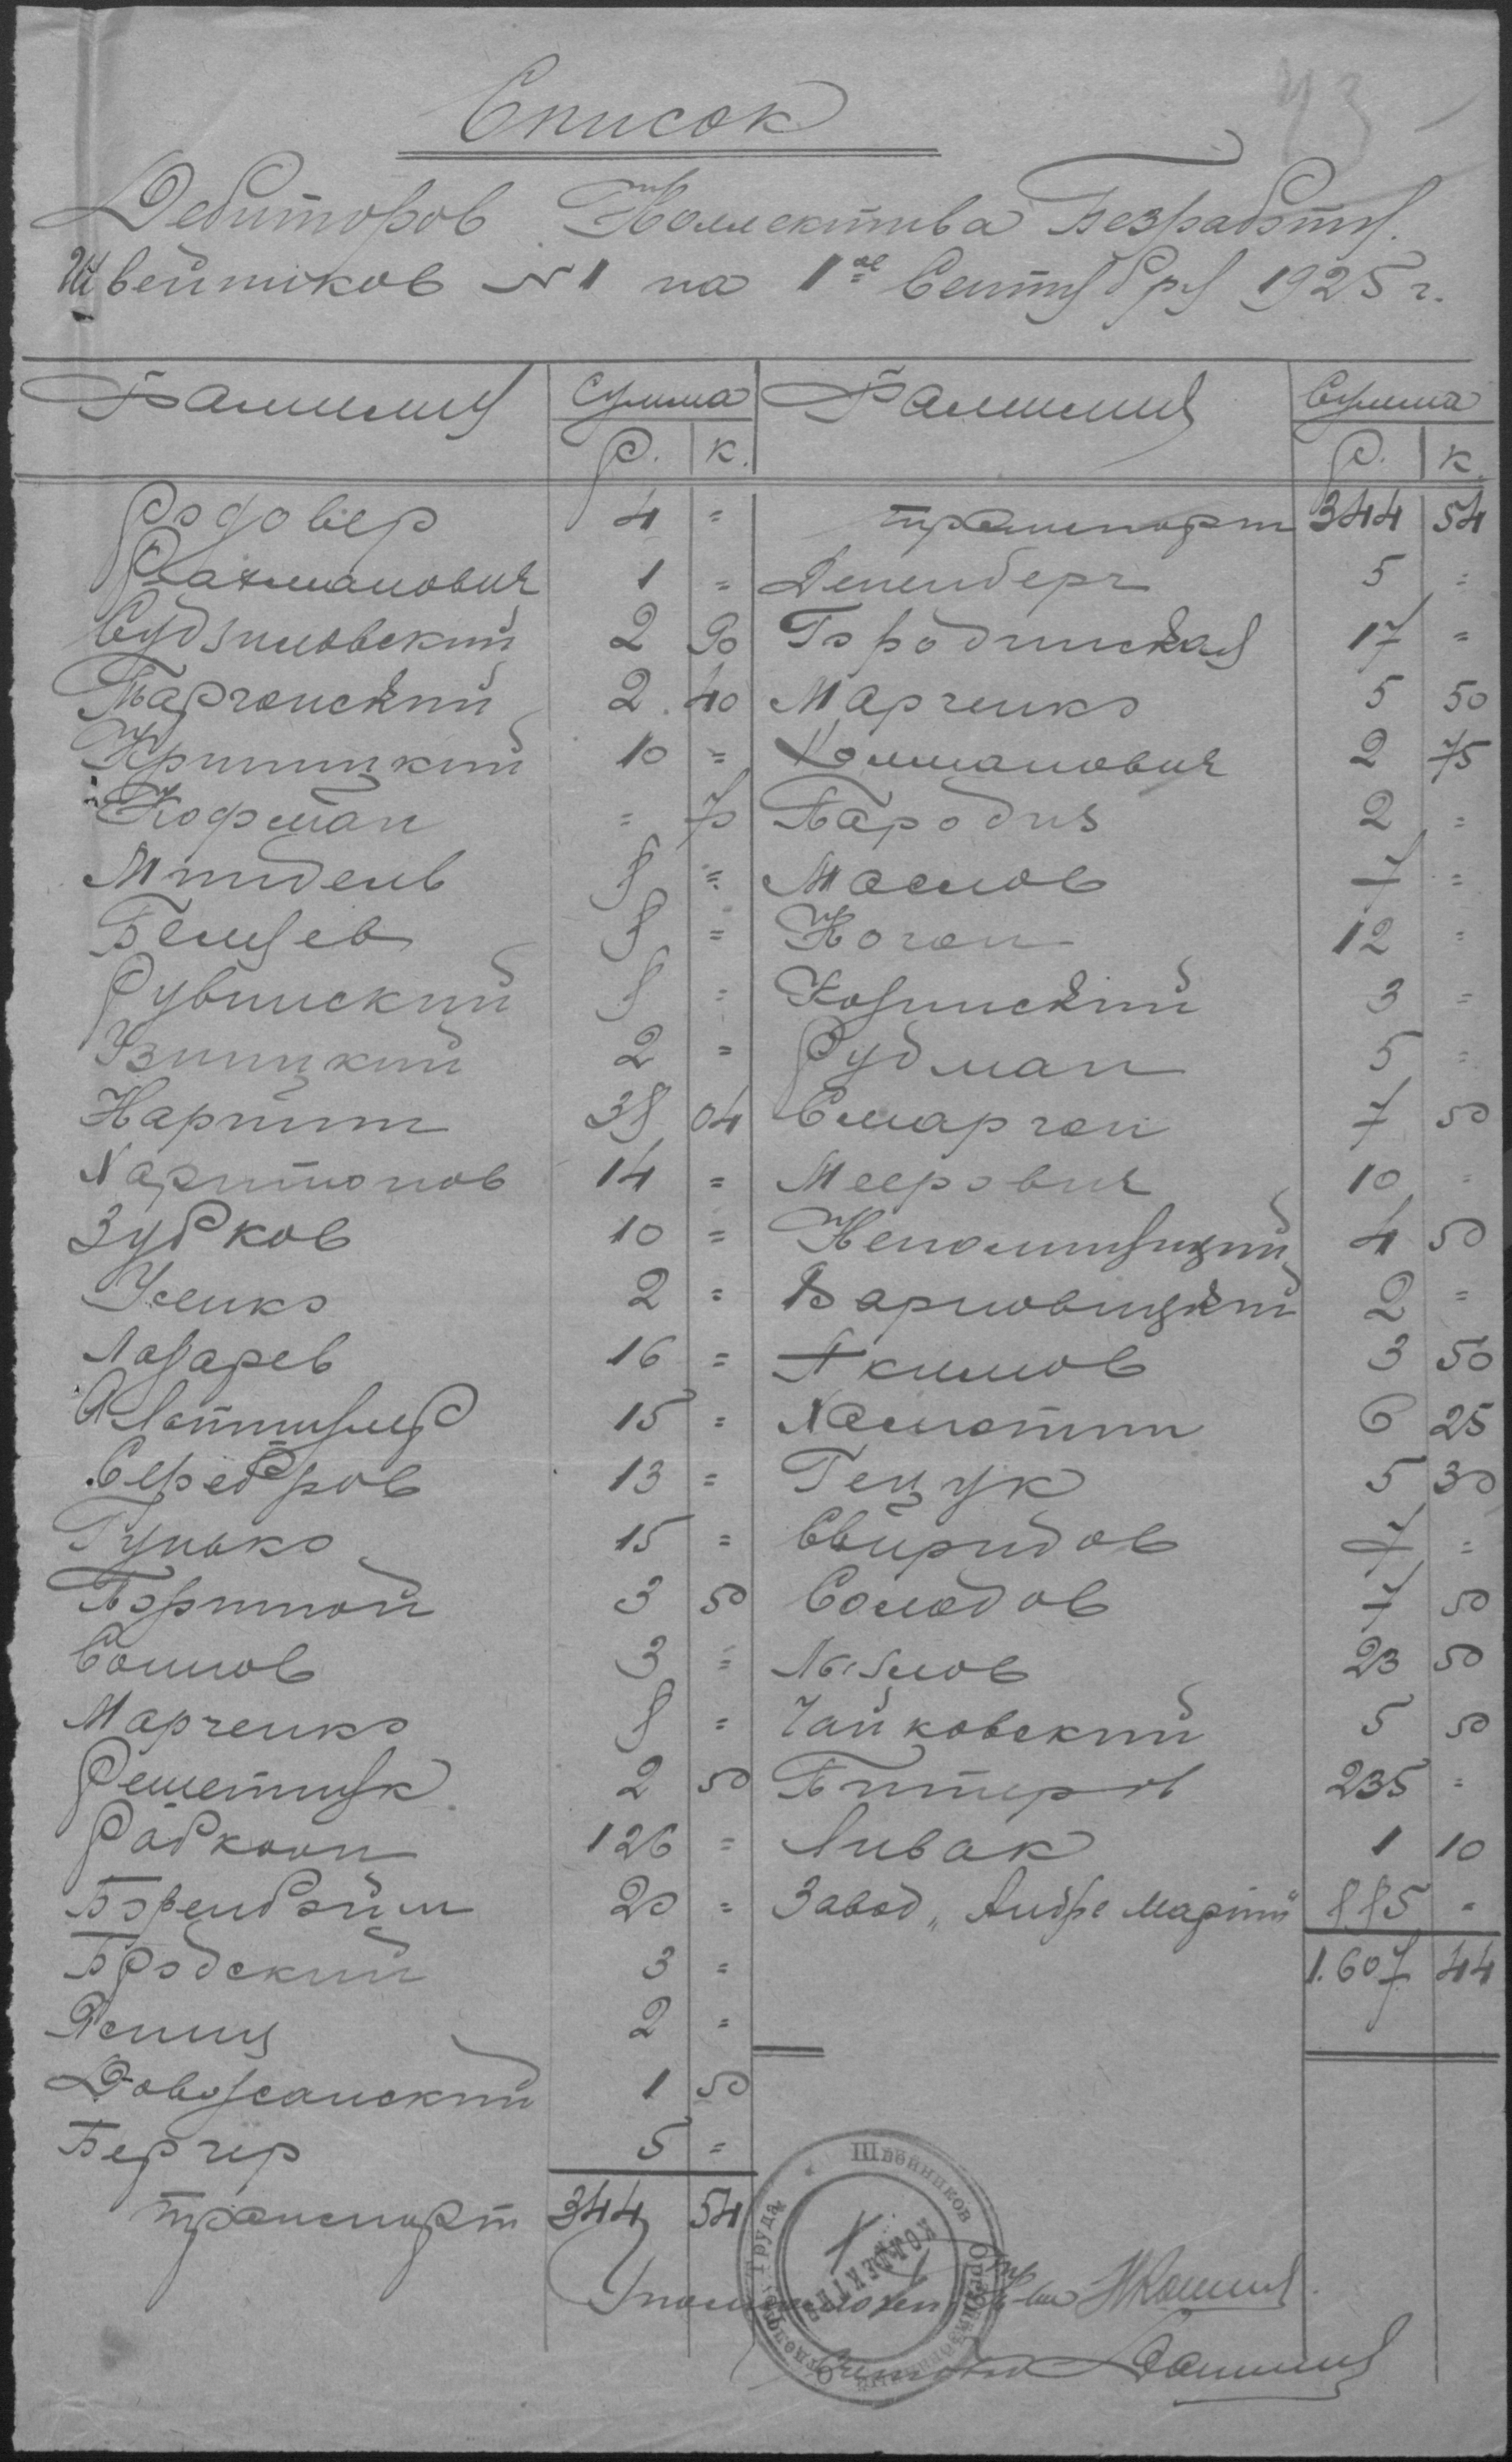 43
Список
Дебиторов Коллектива Безработн.
Швейников №1 на 1ое Сентября 1925 г.
Фамилия Сумма Фамилия Сумма
Р. К. Р. К.
Родовер 4 = транспорт 344 54
Рахманович 1 = Дененберг 5 =
Судзиловский 2 90 Городинская 17 =
Таргонский 2 40 Марченко 5 50
Криницкий 10 = Колманович 2 75
Кофман = 70 Пародия 2 =
Миндель 8 = Маслов 7 =
Беляев 8 = Коган 12 =
Рувинский 8 = Козинский 3 =
Уницкий 2 = Рудман 5 =
Нарпит 38 04 Сморгон 7 50
Харитонов 14 = Меерович 10 =
Зубков 10 = Непомнящий 4 50
Усенко 2 = Варновицкий 2 =
Лазарев 16 = Акимов 3 50
15 = Хамотин 6 25
Серебров 13 = Гецук 5 30
Гунько 15 = Свиридов 7 =
Портной 3 50 Солодов 7 50
Сомов 3 = 23 50
Марченко 8 = Чайковский 5 50
Решетняк 2 50 Питеров 235 =
Рабкооп 126 = Ливак 1 10
Беренбойм 20 = Завод „Андре Марти" 885 =
Бродский 3 = 1.607 44
2 =
Довожанский 1 50
Бергер 5 =
транспорт 344 54
Швейников
КОЛЛЕКТИВ
Труда